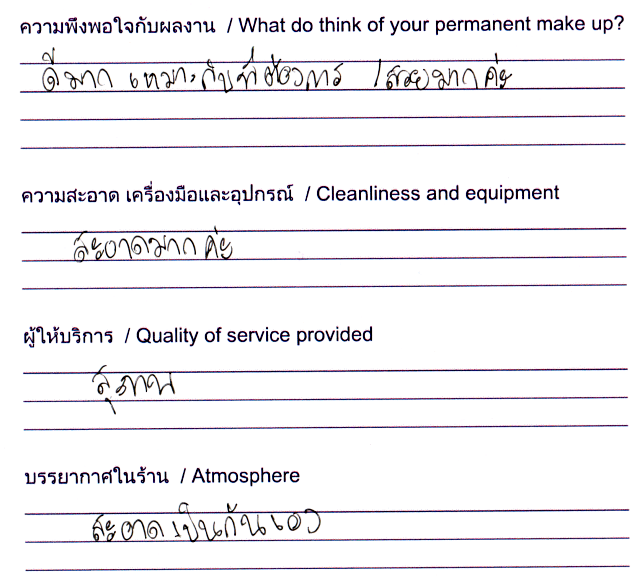 ความพึงพอใจกับผลงาน / What do think of your permanent make up?
ดีมาก เหมาะกับที่ต้องการ สวยมากค่ะ
ความสะอาด เครื่องมือและอุปกรณ์ / Cleanliness and equipment
สะอาดมากค่ะ
ผู้ให้บริการ / Quality of service provided
สุภาพ
บรรยากาศในร้าน / Atmosphere
สะอาด เป็นกันเอง